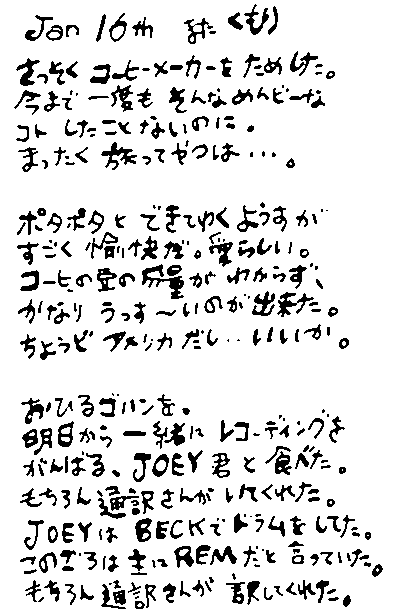 Jan 16th また くもり
さっそく コーヒーメーカーを ためした。
今まで 一度も そんな めんどーな
コト したこと ないのに。
まったく 旅ってやつは…。
ポタポタと できてゆく ようすが
すごく 愉快だ。愛らしい。
コーヒーの豆の分量が わからず、
かなり うっす〜いのが 出来た。
ちょうど アメリカだし‥いいか。
おひるゴハンを。
明日から 一緒に レコーディングを
がんばる、JOEY 君と 食べた。
もちろん 通訳さんが いてくれた。
JOEYは BECKで ドラムを してた。
このごろは 主に REMだと 言っていた。
もちろん 通訳さんが 訳してくれた。